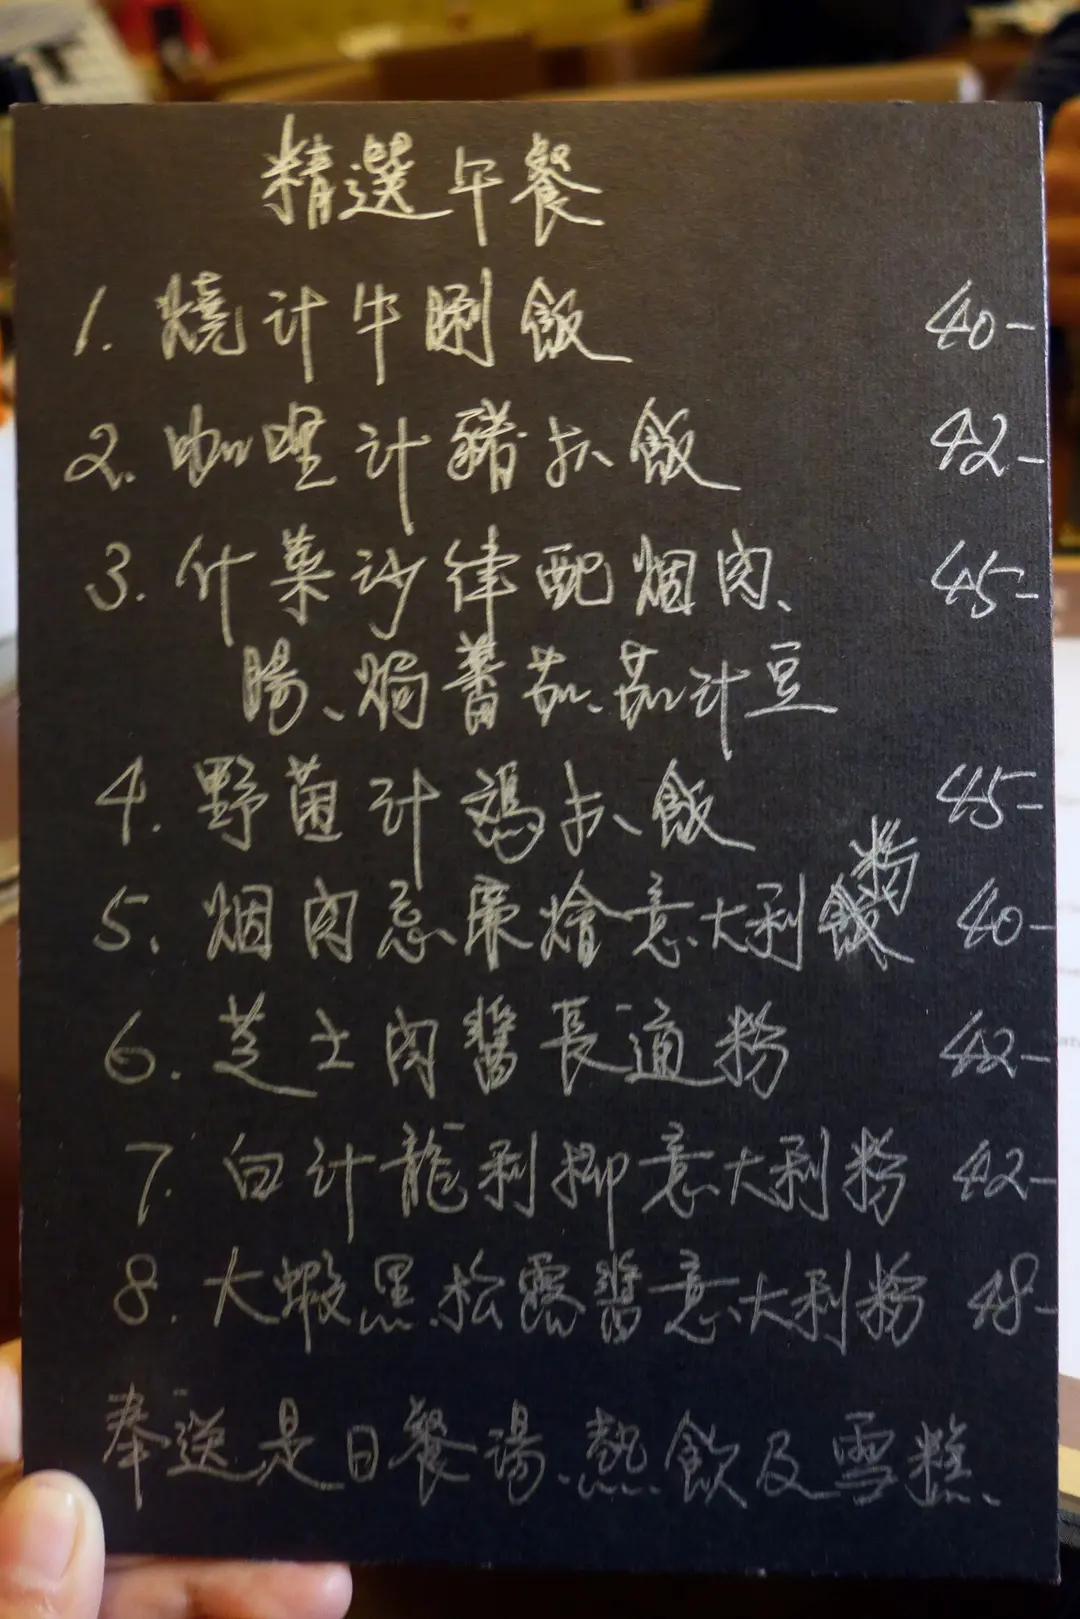 精選午餐
1. 燒汁牛脷飯 40-
2. 咖哩汁豬扒飯 42-
3. 什菜沙律配烟肉、 45-
腸、焗蕃茄、茄汁豆
4. 野菌汁鷄扒飯 45-
5. 烟肉忌廉燴意大利粉 40-
6. 芝士肉醬長通粉 42-
7. 白汁龍利柳意大利粉 42-
8. 大蝦黑松露醬意大利粉 48-
奉送是日餐湯、熱飲及雪糕、